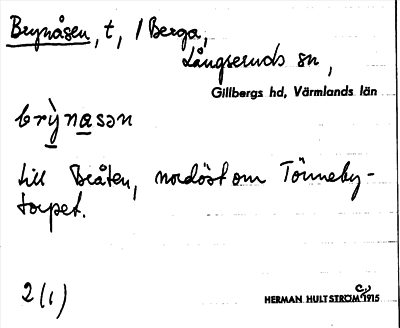 Brynåsen, t, / Berga,
Långseruds sn,
Gillbergs hd, Värmlands län
brỳnasən
till Beåten, nordöst om Tönneby-
torpet.
2 (1)
HERMAN HULTSTRÖM c. 1915